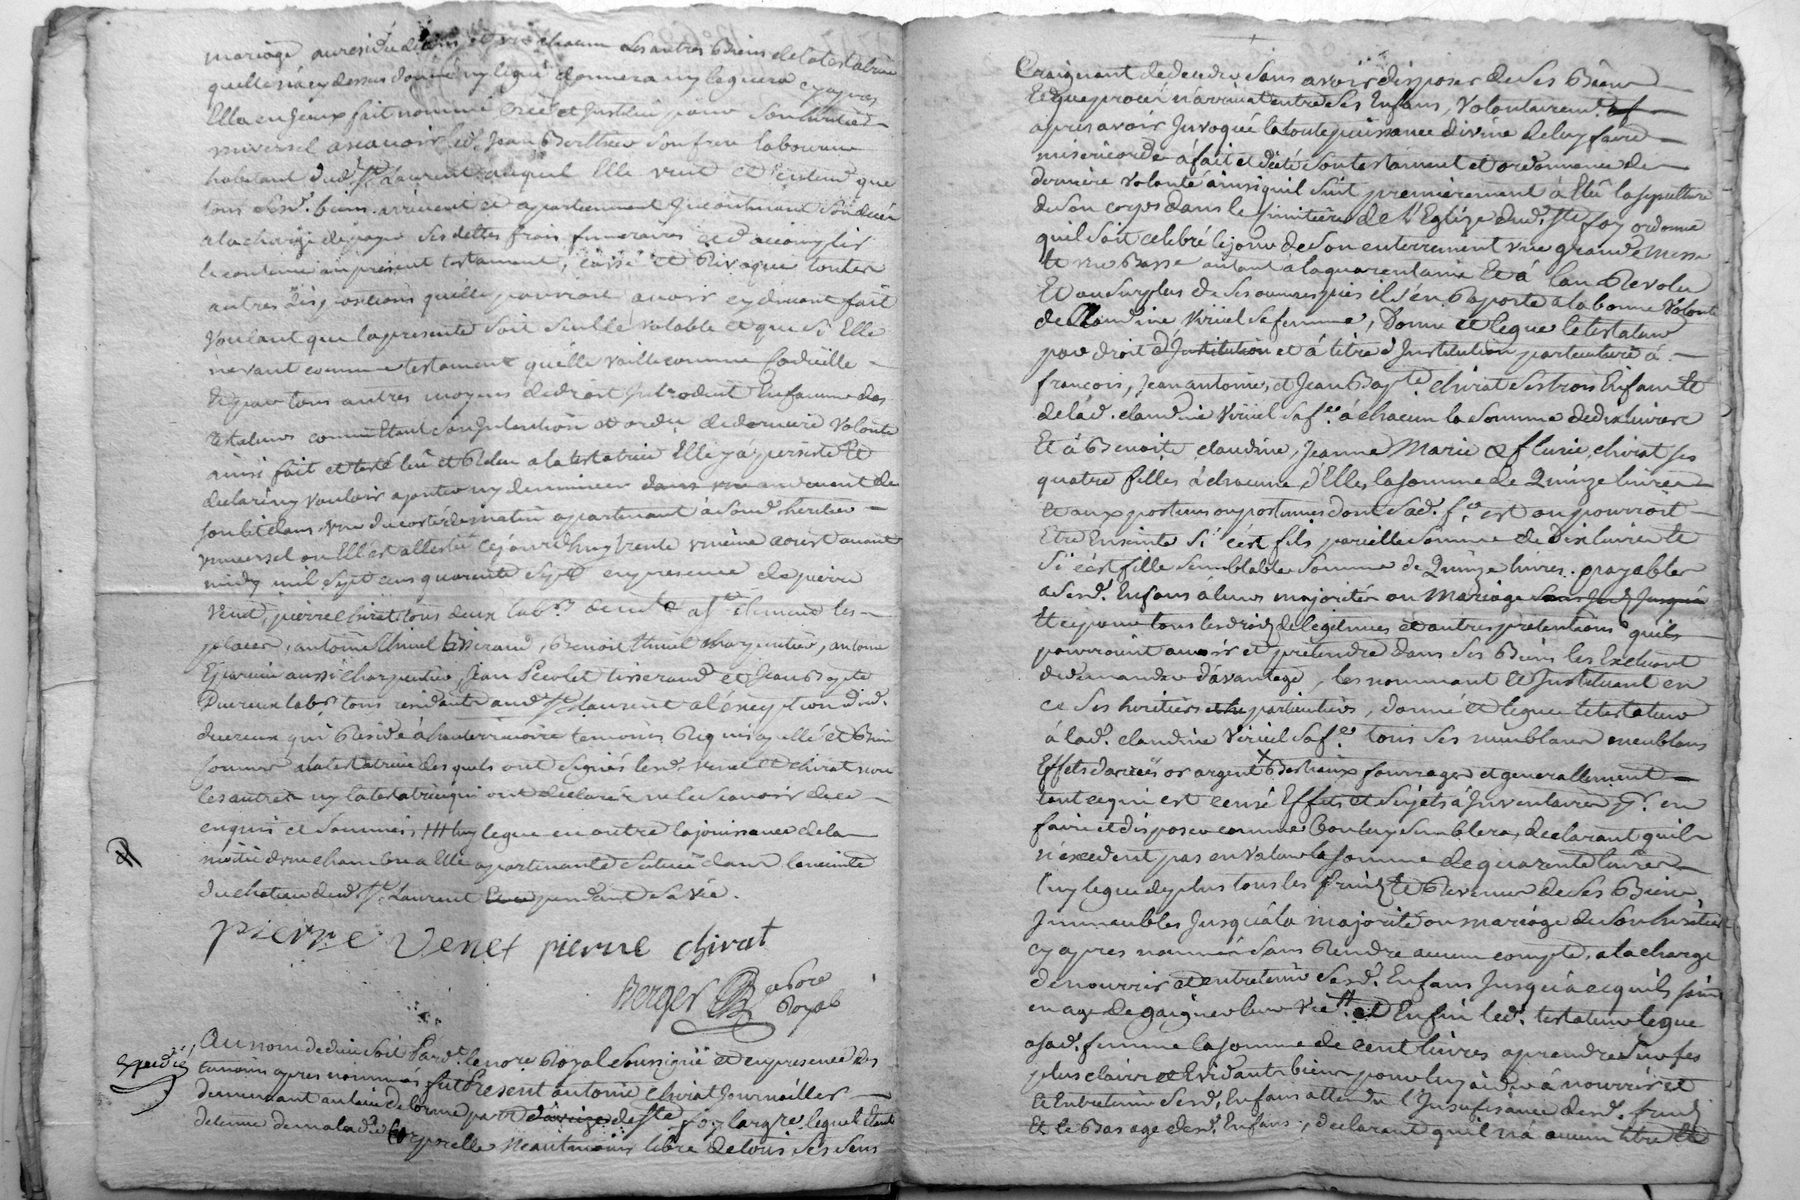 mariage au residu de tous et un chacun les autres Biens de la testatrice
quelle n'a cy dessus donné ny legué donnera ny leguera cy apres
Elle en Jceux fait nommé Créé et Jnstitué pour Son heritier
universel a scavoir led. Jean Berthier Son frere laboureur
habitant dud. St. Laurent auquel Elle veut et Entend que
tous Sesd. biens arrivent et apartiennent Jncontinant Son deces
a la charge de payer Ses dettes frais funeraires et d'accomplir
le contenu au present testament, cassé et Revoque toutes
autres Dispositions quelle pourroit avoir cy devant fait
Voulant que la presente Soit Seulle valable et que Si Elle
ne vaut comme testament quelle vaille comme Codicille
Et par tous autres moyens de droit Jntrodent En faveur des
testateurs comm Etant Son Jntention et ordre de derniere Volonté
ainsi fait et testé leu et Releu a la testatrice Elle y a persisté Et
declaré ny vouloir ajouter ny diminuer
universel ou Elle est allittée ce jourd'huy trente unieme aoust avant
midy mil Sept cens quarante Sept en presence de pierre
Venet, pierre Chirat tous deux labrs.
places, antoine thivel tisserand, Benoit thivel charpentier, antoine
aussi charpentier, Jean tisserand et Jean Bapte
labr. tous residants aud. St. laurent a l'éxeption dud.
ducreux qui Reside à hauterivoire temoins Requis apellé et Bien
lesquels ont Signés led. Venet et chirat non
les autres ny la testatrice qui ont declarés ne le Scavoir de ce
enquis et Sommés, luy legue en outre la jouissance de la
moitié d'une chambre a Elle apartenante Située dans l'enceinte
du chateau dud. St. Laurent pendant Sa vie.
pierre Venet pierre chirat
Berger nore Royal
Expedié
Au nom de dieu Soit Pard. le nore Royal Soussigné et en presence des
temoins apres nommés fut Present antoine Chirat Journallier
demeurant au lieu de parse de Ste foy largre lequel Etant
detenu de maladie Corporelle Neantmoins libre de tous Ses Sens
Craignant de deceder Sans avoir disposer de Ses Biens
Et que procés n'arrivat entre Ses Enfans, Volontairement
apres avoir Jnvoqué la toute puissance divine de luy faire
misericorde à fait et dicté Son testament et ordonnance de
derniere Volonté ainsi quil Suit premierement à Elû la sepulture
de Son corps dans le Simitiere de l'Eglize dud. Ste foy ordonne
quil Soit celebré le jour de Son enterrement une grande Messe
Et une Basse autant à la quarantaine Et à l'an Revolu
Et au Surplus de Ses oeuvres pies il S'en Raporte a la bonne Volonté
de Claudine Viriel Sa femme, Donne et legue le testateur
par droit d'Jnstitution et à titre d'Jnstitution particuliere à
françois, Jean antoine, et Jean Bapte. chirat Ses trois Enfants
de lad. claudine Viriel Sa fe. à chacun la Somme de dix livres
Et à Benoite claudine, Jeanne Marie & flurie, chirat Ses
quatre filles à chacune d'Elles la Somme de Quinze livres
Et aux postumes ou postumes dont Sad. fe. est ou pourroit
Etre Enceinte Si c'est fils pareille Somme de Dix livres Et
Si c'est fille Semblable Somme de Quinze livres payables
a Sesd. Enfans à leurs majorités ou Mariage
Et ce pour tous les droits de legitimes et autres pretentions quils
pourroient avoir et pretendre dans Ses Biens les Excluant
de demander d'avantage, les nommant Et Jnstituant en
ce Ses heritiers particuliers, donne et legue le testateur
à lad. claudine Viriel Sa fe. tous Ses meublans
Effets dorcées or argent Bestiaux fourrages et generallement
tout ce qui est censé Effets et Sujets à Jnventaires pr. en
faire et disposer comme Bon luy Semblera, declarant quils
n'excedent pas en valeur la Somme de quarante livres
luy legue de plus tous les fruits Et Revenus de Ses Biens
Jmmeubles Jusqu'a la majorité ou mariage de Son heritier
cy apres nommé Sans Rendre aucun compte, a la charge
de nourrir et entretenir Sesd. Enfans Jusqu'a ce quils soient
en age de gaigner leur vie Et Enfin led. testateur legue
a Sad. femme la Somme de cent livres a prendre Sur Ses
plus clairs et Evidants biens pour luy aider à nourrir et
Et Entretenir Sesd. Enfans attendu l'Jnsufisance desd. fruits
Et le Bas age desd. Enfans, declarant quil n'a aucun titre